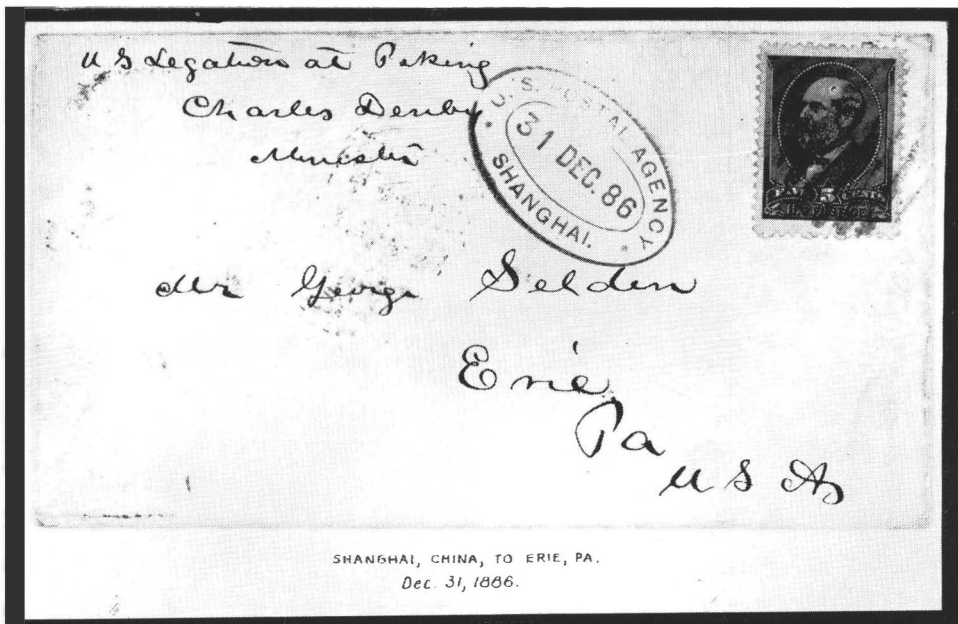 U S Legation at Peking
Charles Denby
Minister
U. S. POSTAL AGENCY
31 DEC. 86
SHANGHAI.
5
Mr George Selden
Erie,
Pa
U S A
SHANGHAI, CHINA, TO ERIE, PA.
Dec. 31, 1886.